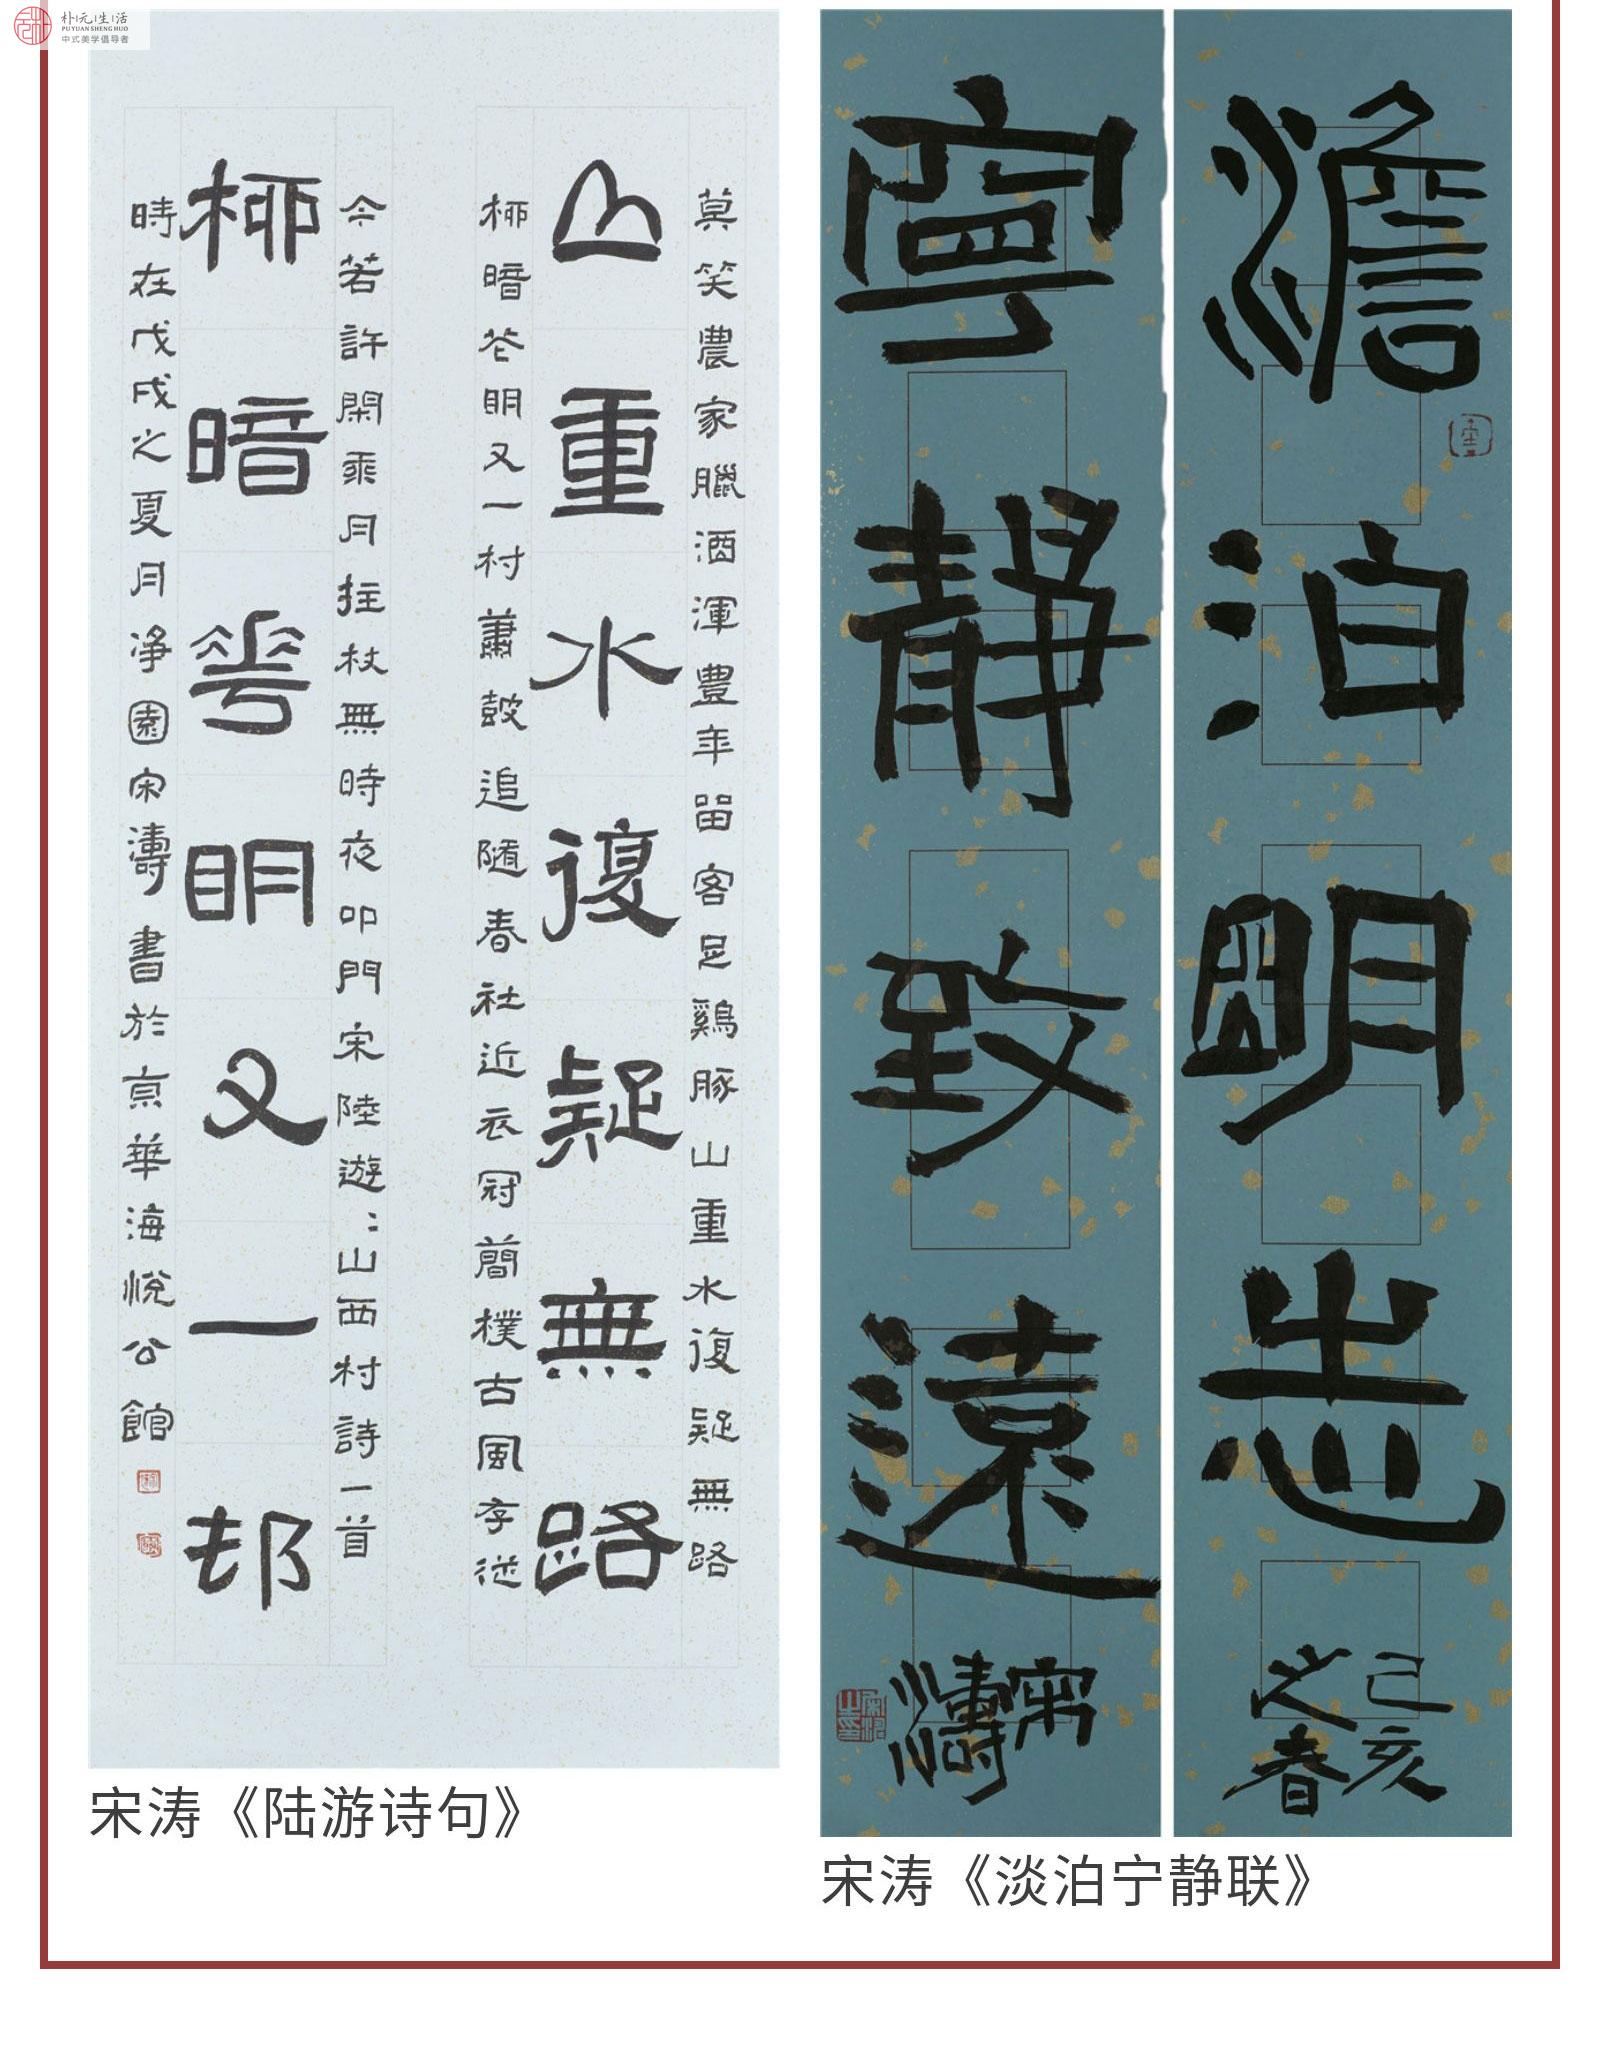 朴元生活
PU YUAN SHENG HUO
中式美学倡导者
莫笑農家臘酒渾豊年留客足鷄豚山重水復疑無路
山重水復疑無路
柳暗花明又一村蕭鼓追隨春社近衣冠簡樸古風存従
今若許閑乘月拄杖無時夜叩門宋陸遊〻山西村詩一首
柳暗花明又一邨
時在戊戌之夏月净園宋濤書於京華海悦公館
宋涛《陆游诗句》
澹泊明志
己亥
之春
寧静致遠
宋
濤
宋涛《淡泊宁静联》